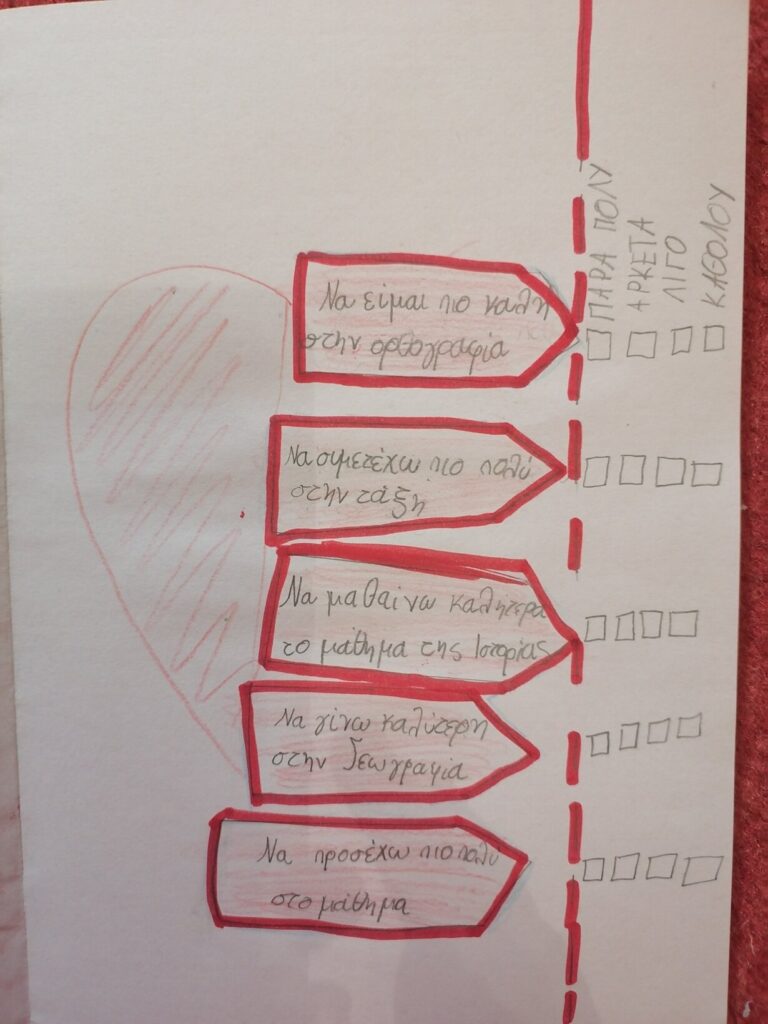 ΠΑΡΑ ΠΟΛΥ
ΑΡΚΕΤΑ
ΛΙΓΟ
ΚΑΘΟΛΟΥ
Να είμαι πιο καλή
στην ορθογραφία
Να σιμετέχω πιο πολύ
στην τάξη
Να μαθαίνω καλήτερα
το μάθημα της Ιστορίας
Να γίνω καλύτερη
στην Γεωγραφία
Να προσέχω πιο πολύ
στο μάθημα